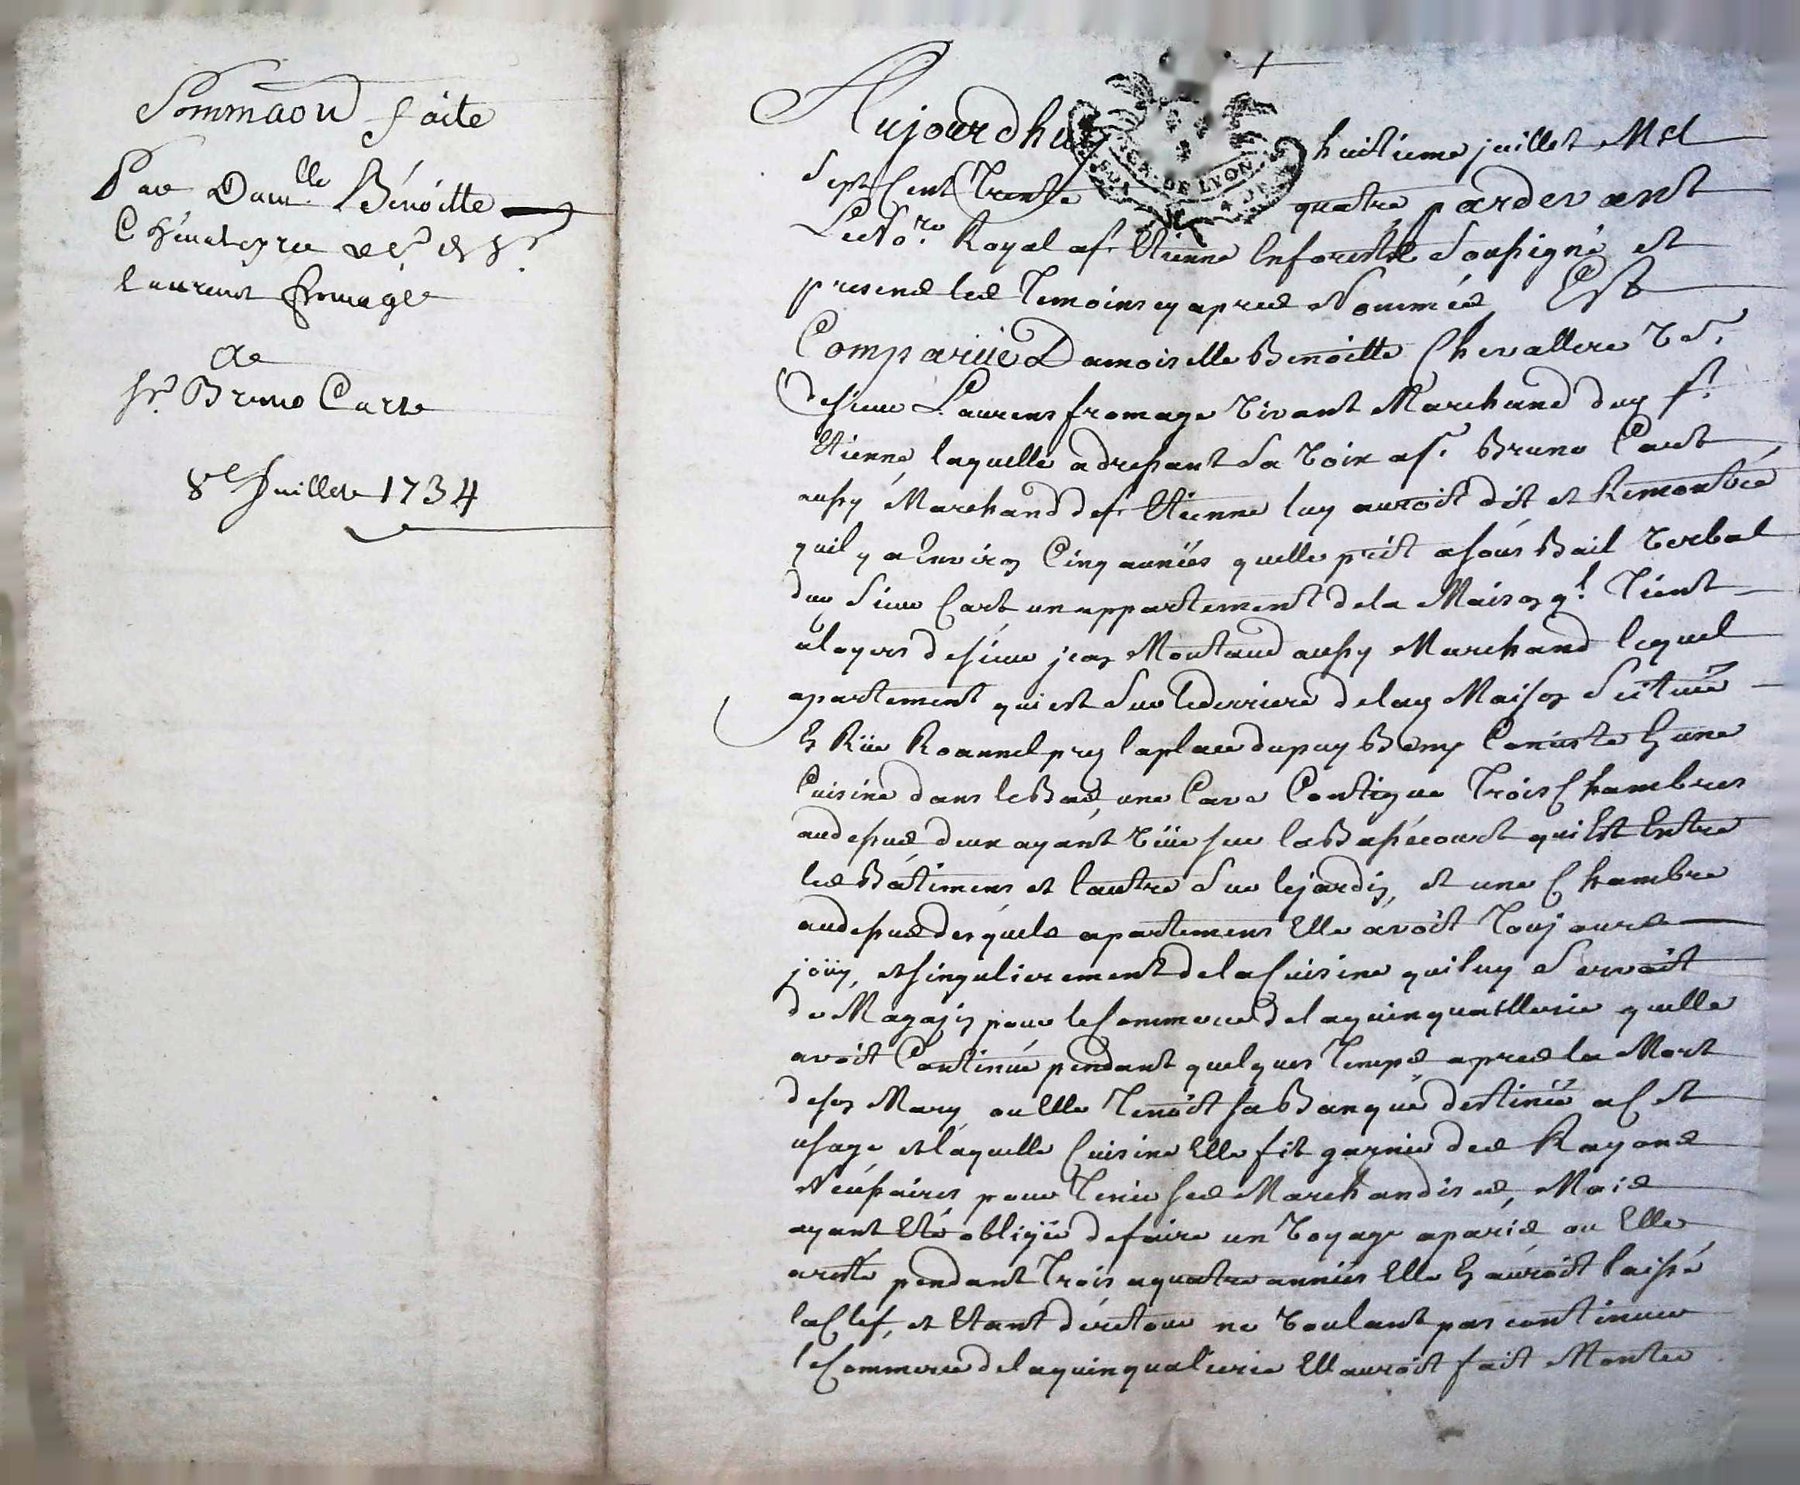 Sommaon faite
Par Dam.lle Benoitte
Chevaleyre ve de Sr
Laurent fromage
a
Sr. Bruno Carte
8e Juillet 1734
Aujourdhuy huitieme juillet Mil
GN. DE LYON
Sept Cent Trente quatre pardevant
Le No.re Royal a st Etienne en forest Soussigné et
presens les Temoins cy apres Nommés, Est
Comparüe Damoiselle Benoitte Chevallere Ve
de sieur Laurens fromage Vivant Marchand duy st
Etienne laquelle adressant Sa Voix a sr. Bruno Cart
aussy Marchand de st Etienne luy auroit dit et Remontré
quil y a Environ Cinq années quelle prit a sous Bail Verbal
duy Sieur Cart un appartement de la Maison ql. Tient
a loyers de sieur jean Montaud aussy Marchand lequel
apartement qui est Sur le derriere de lay Maison Scituée
En Rüe Roannel prez la place du puy Beny Consiste En une
Cuisine dans le Bas, une Cave Contigue Trois Chambres
au dessus deux ayant Vüe sur la Bassecourt qui Est Entre
les Bâtimens et lautre Sur le jardin, et une Chambre
au dessus desquels apartemens Elle avoit Toujours
joüy, et singulierement de la Cuisine qui luy Servoit
de Magazin pour le Commerce de la quinquallerie quelle
avoit Continué pendant quelques Temps apres la Mort
de son Mary ou Elle Tenoit sa Banque destinée a Cet
usage et laquelle Cuisine Elle fit garnir des Rayons
Necessaires pour Tenir ses Marchandises, Mais
ayant Eté obligée de faire un Voyage a paris ou Elle
a resté pendant Trois a quatre années Elle En auroit laissé
la Clef, et Etant de retour ne Voulant pas continuer
le Commerce de la quinqualierie Ell auroit fait Monter